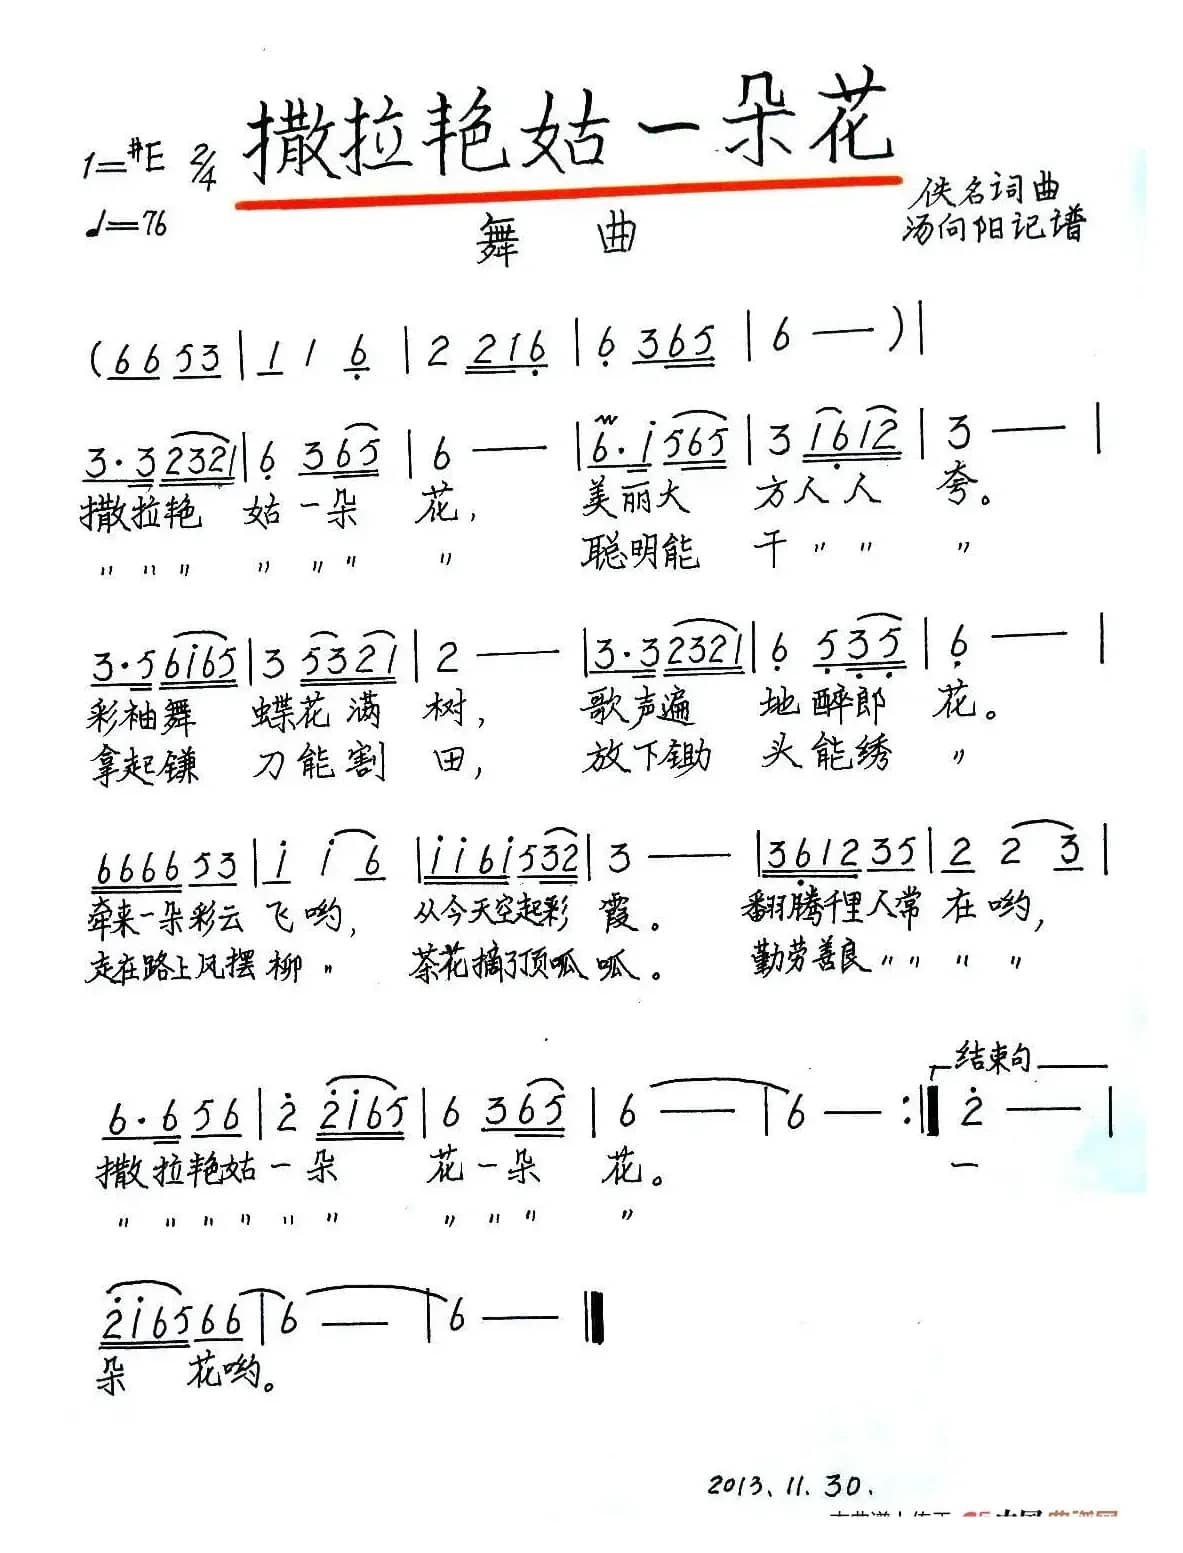 撒拉艳姑一朵花
1=#E 2/4
♩=76
舞 曲
佚名词曲
汤向阳记谱
(6653|116|2216|6365|6—)|
3·32321|6365|6—|6·i565|31612|3—|
撒拉艳 姑一朵 花, 美丽大 方人人 夸。
〃〃〃 〃〃〃 〃 聪明能 干〃〃 〃
3·56i65|35321|2—|3·32321|6535|6—|
彩袖舞 蝶花满 树, 歌声遍 地醉郎 花。
拿起镰 刀能割 田, 放下锄 头能绣 〃
666653|ii6|ii6i532|3—|361235|223|
牵来一朵彩云飞哟, 从今天空起彩霞。 翻腾千里人常在哟,
走在路上风摆柳〃 茶花摘了顶呱呱。 勤劳善良〃〃〃〃
结束句
6·656|22i65|6365|6—|6—:‖2—|
撒拉艳姑一朵 花一朵 花。 一
〃〃〃〃〃〃 〃〃〃 〃
2i6566|6—|6—‖
朵 花哟。
2013.11.30.